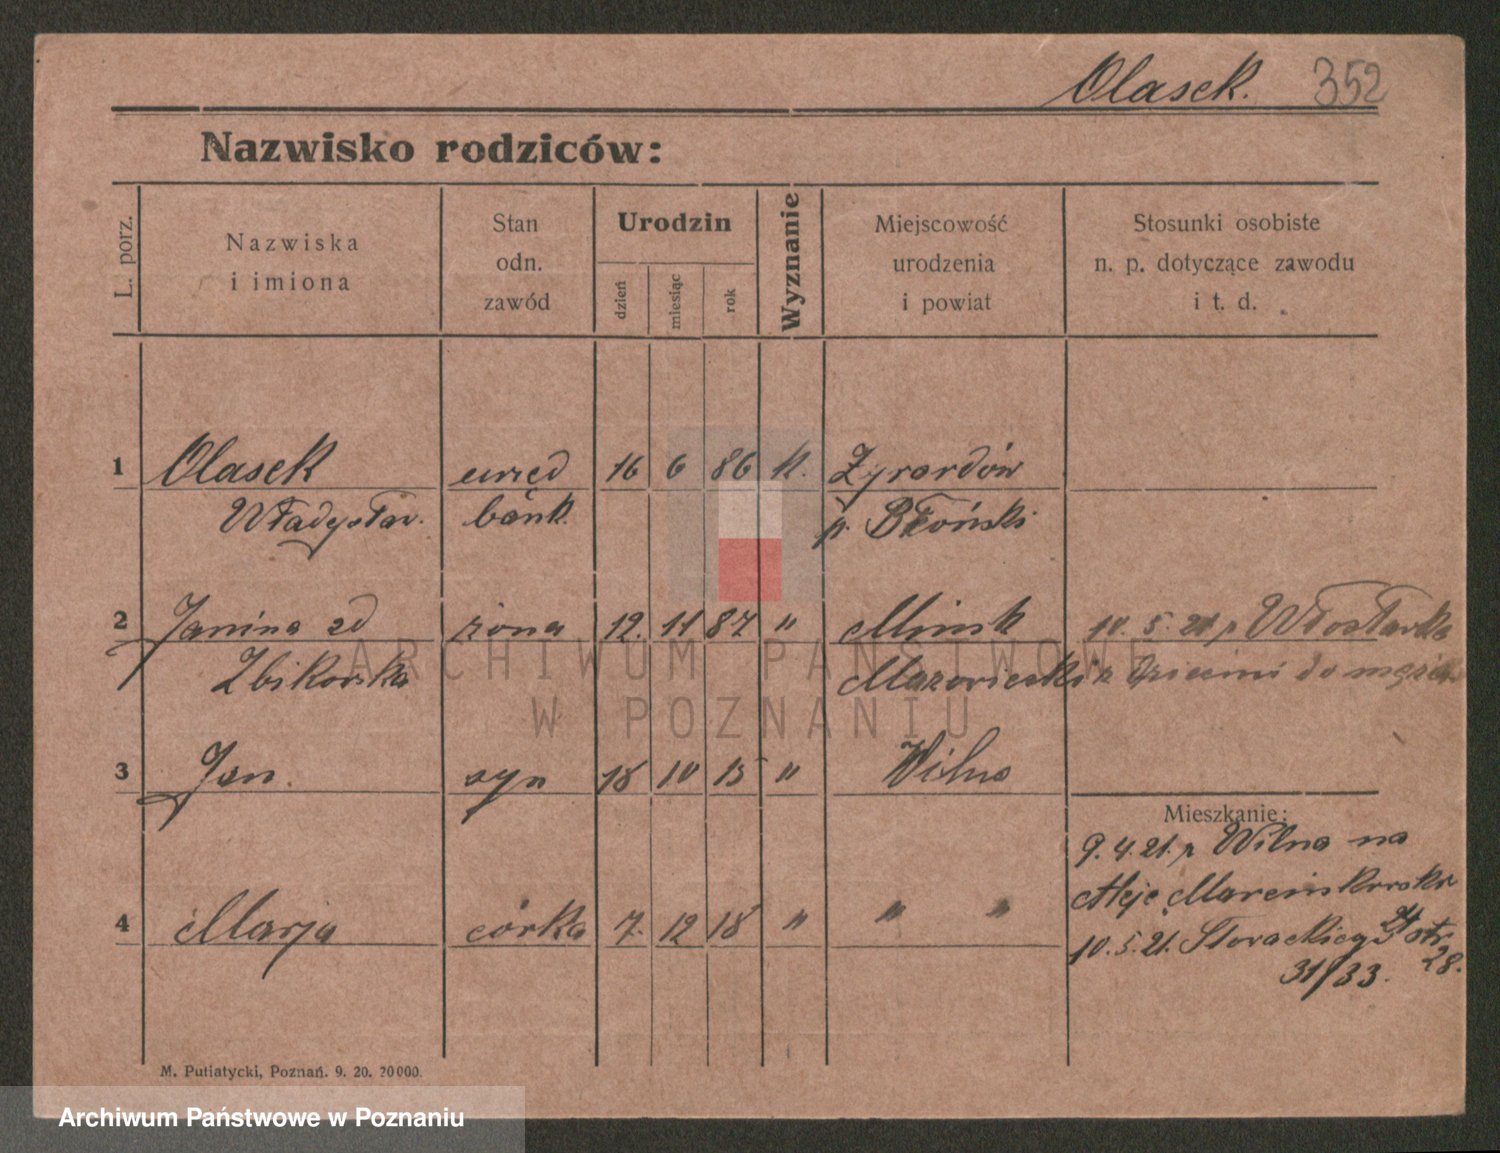 Olasek. 352
Nazwisko rodziców:
L. porz.
Nazwiska
i imiona
Stan
odn.
zawód
Urodzin
dzień
miesiąc
rok
Wyznanie
Miejscowość
urodzenia
i powiat
Stosunki osobiste
n. p. dotyczące zawodu
i t. d.
1 Olasek urzęd 16 6 86 k. Żyrardów
Władysław. bank. p. Błoński
2 Janina zd żona 12. 11 87 " Mińsk 10. 5. 21 z Włocławka
Zbikorska Mazowiecki z dziećmi do męża
3 Jan. syn 18 10 15 " Wilno
Mieszkanie:
9. 4. 21. z Wilna na
Aleje Marcinkowski
4 Marja córka 7. 12 18 " " "
10. 5. 21. Słowackiego
31/33. 28.
M. Putiatycki, Poznań. 9. 20. 20000.
ARCHIWUM PAŃSTWOWE
W POZNANIU
Archiwum Państwowe w Poznaniu